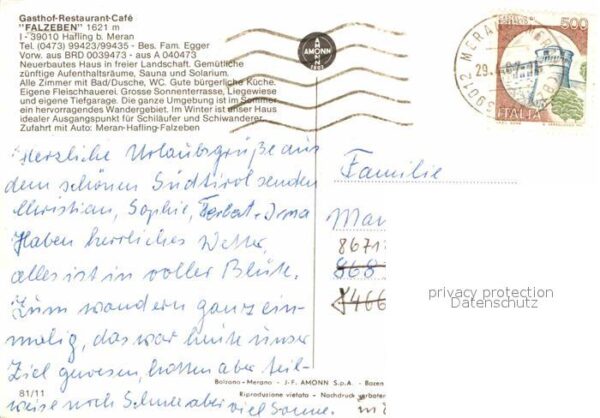 Gasthof-Restaurant-Café
"FALZEBEN" 1621 m
I - 39010 Hafling b. Meran
Tel. (0473) 99423/99435 - Bes. Fam. Egger
Vorw. aus BRD 0039473 - aus A 040473
Neuerbautes Haus in freier Landschaft. Gemütliche
zünftige Aufenthaltsräume, Sauna und Solarium.
Alle Zimmer mit Bad/Dusche, WC. Gute bürgerliche Küche.
Eigene Fleischhauerei. Grosse Sonnenterrasse, Liegewiese
und eigene Tiefgarage. Die ganze Umgebung ist im Sommer
ein hervorragendes Wandergebiet. Im Winter ist unser Haus
idealer Ausgangspunkt für Schiläufer und Schiwanderer.
Zufahrt mit Auto: Meran-Hafling-Falzeben
AMONN
500
ITALIA
39012 MERANO
29.
Herzliche Urlaubsgrüße aus
dem schönen Südtirol senden
Christian, Sophie, Herbert + Irma
Haben herrliches Wetter,
alles ist in voller Blüte.
Zum wandern ganz ein-
malig, das war heute unser
Ziel gewesen, hatten aber teil-
weise noch Schnee aber viel Sonne.
Familie
Mar
8671
868
8466
privacy protection
Datenschutz
81/11
Bolzano - Merano - J.F. AMONN S.p.A. - Bozen
Riproduzione vietata - Nachdruck verboten